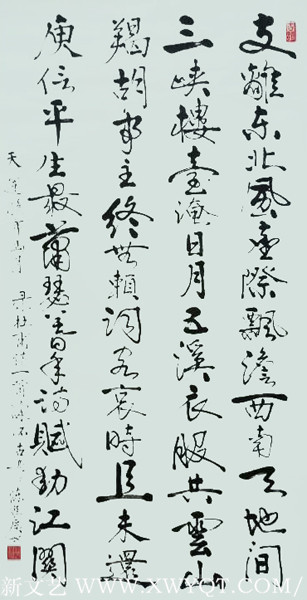 支離东北風塵際飄澹西南天地間
三峽樓臺淹日月五溪衣服共雲山
羯胡事主終無賴詞客哀時且未還
庾信平生最蕭瑟暮年詩賦動江關
杜甫詩一首詠懷古
新文艺 - WWW.XWYQT.COM